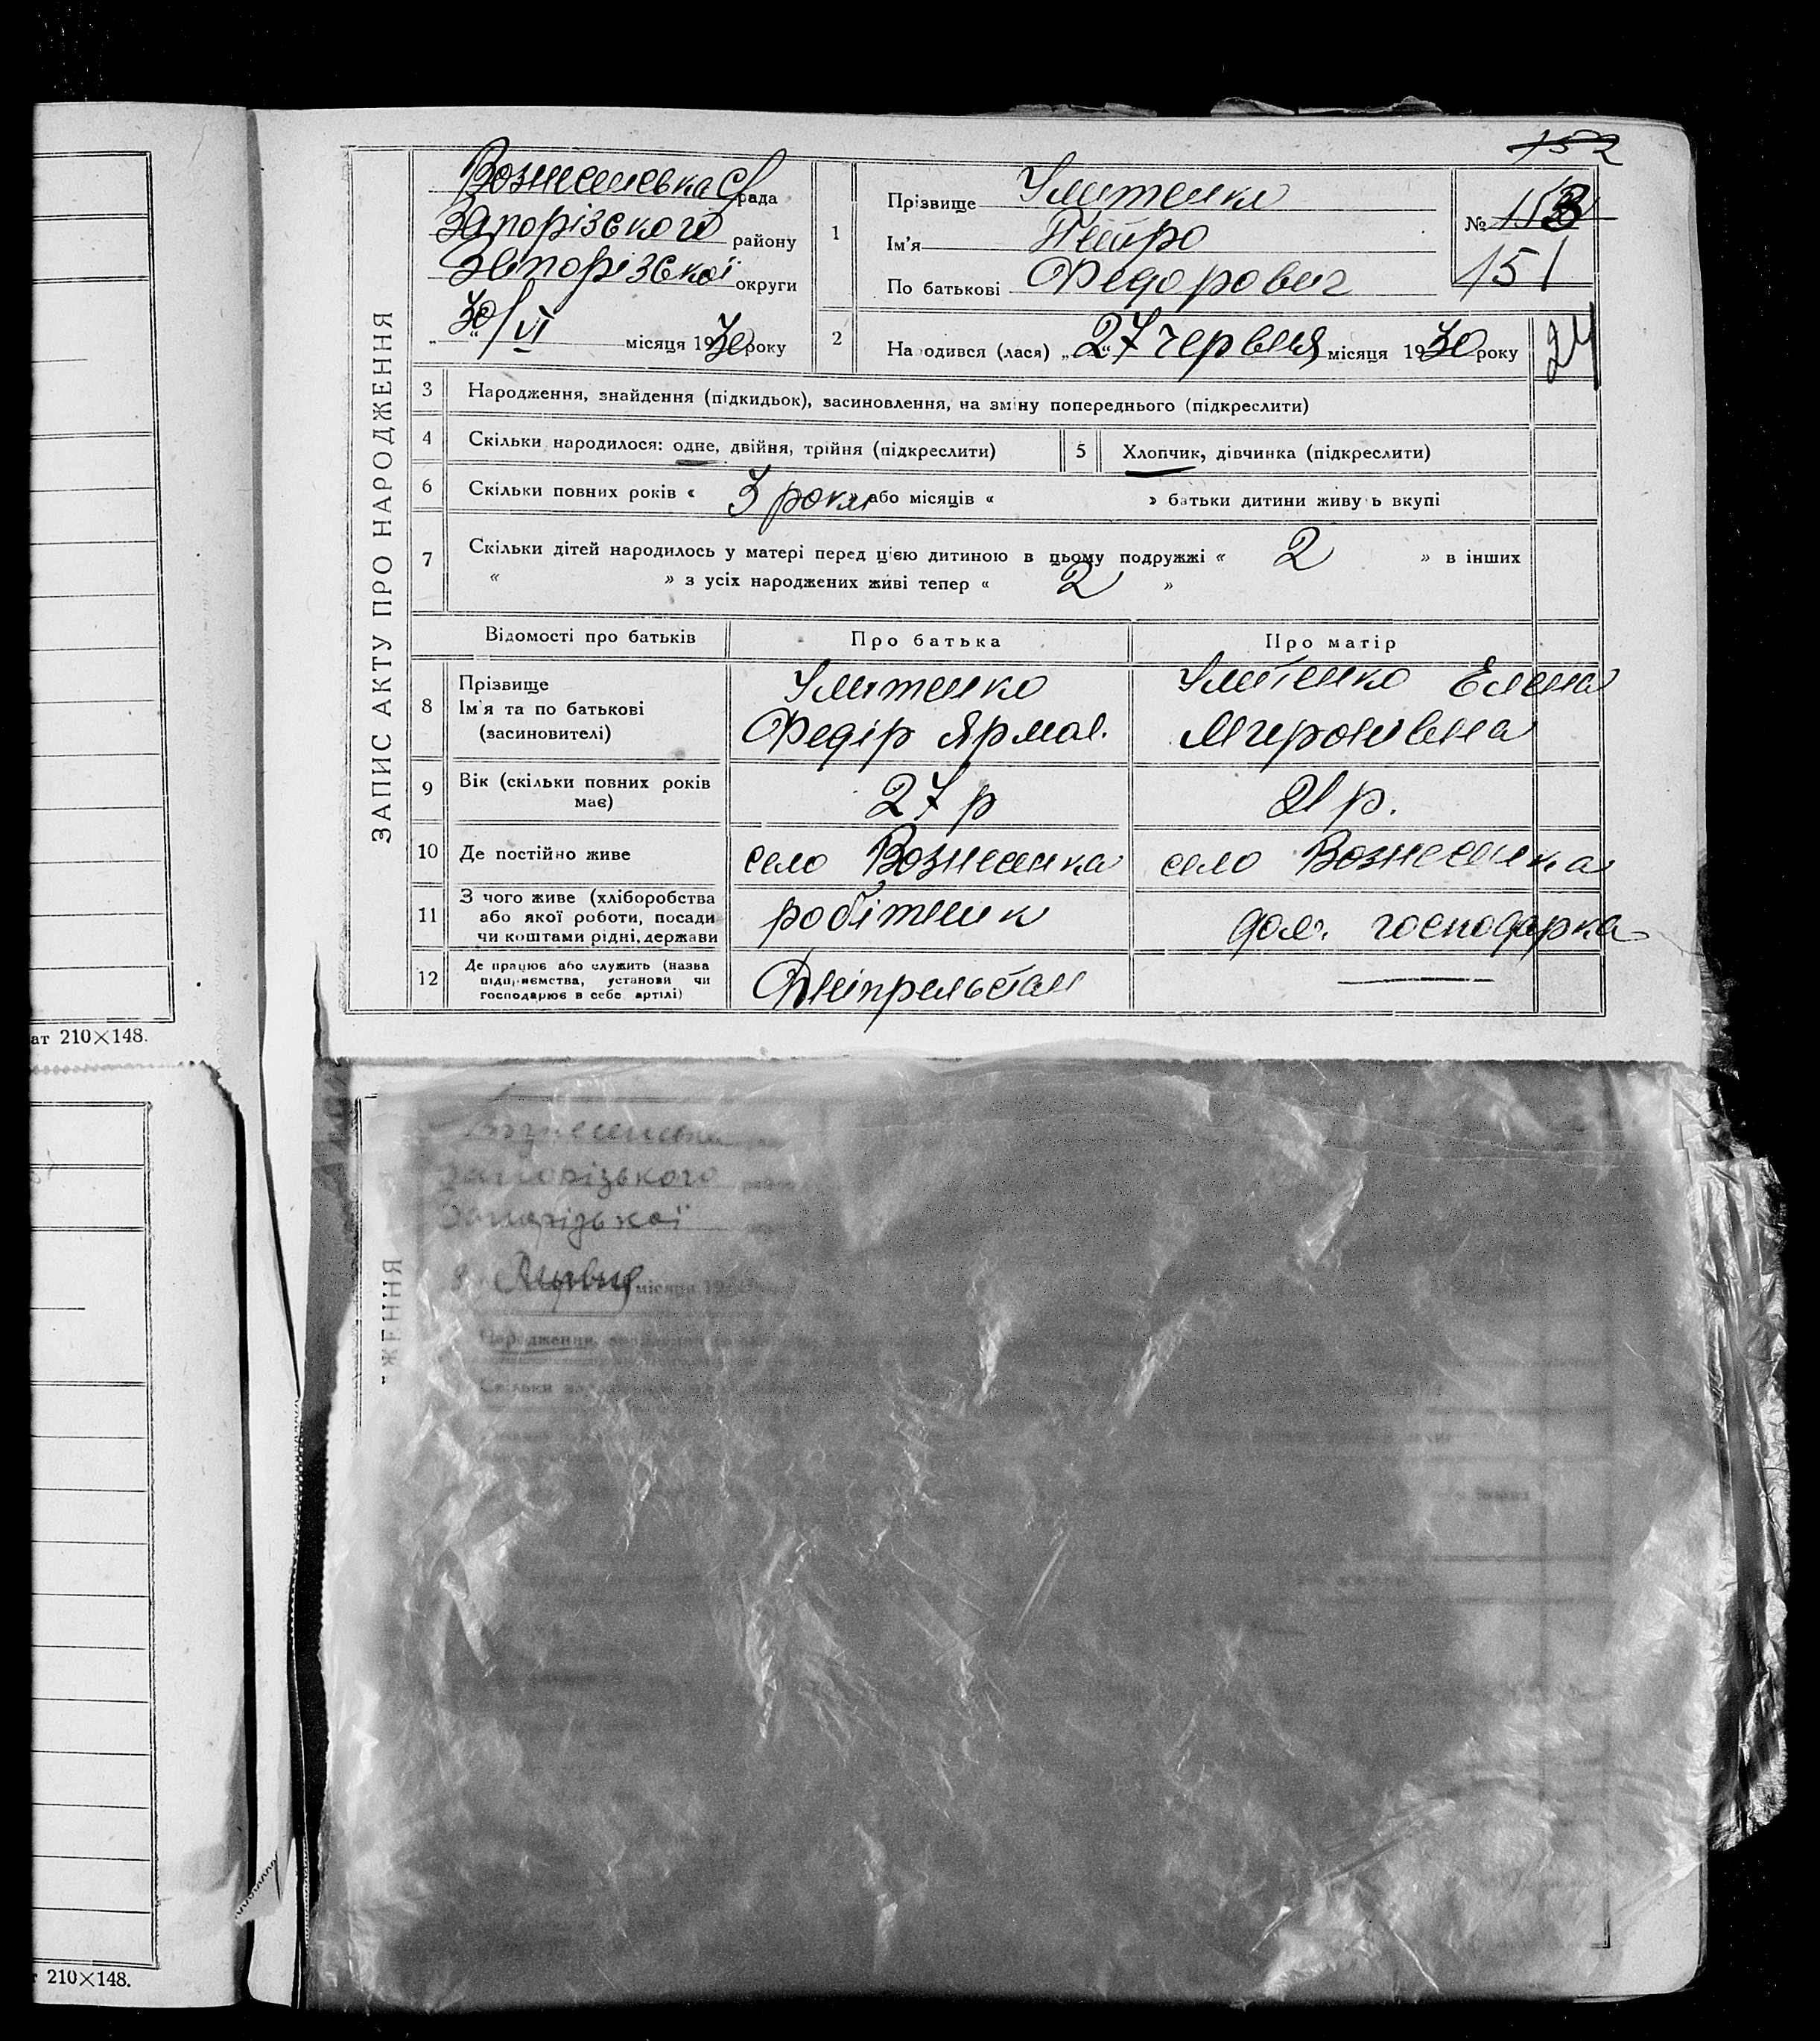 152
ЗАПИС АКТУ ПРО НАРОДЖЕННЯ
Вознесенська С/рада
Запорізского району
Запорізскої округи
„30/VI місяця 1930 року
1
Прізвище Улитенко
Ім'я Петро
По батькові Федорович
№ 153
151
2
Народився (лася) „27" червня місяця 1930 року
24
3 Народження, знайдення (підкидьок), засиновлення, на зміну попереднього (підкреслити)
4 Скільки народилося: одне, двійня, трійня (підкреслити)
5 Хлопчик, дівчинка (підкреслити)
6 Скільки повних років « 3 роки » або місяців « » батьки дитини живуть вкупі
7 Скільки дітей народилось у матері перед цією дитиною в цьому подружжі « 2 » в інших
« » з усіх народжених живі тепер « 2 »
Відомості про батьків Про батька Про матір
8 Прізвище
Ім'я та по батькові
(засновителі)
Улитенко
Федір Ярмол.
Улитенко Елена
Миронівна
9 Вік (скільки повних років
має)
27 р
21 р.
10 Де постійно живе
село Вознесенка
село Вознесенка
11 З чого живе (хліборобства
або якої роботи, посади
чи коштами рідні, держави
робітник
дом. господарка
12 Де працює або служить (назва
підприємства, установи чи
господарює в себе артілі)
Дніпрельстан
ат 210×148.
Запорізького
Запорізької
місяця 19
ЖЕННЯ
Народження,
Скільки
т 210×148.